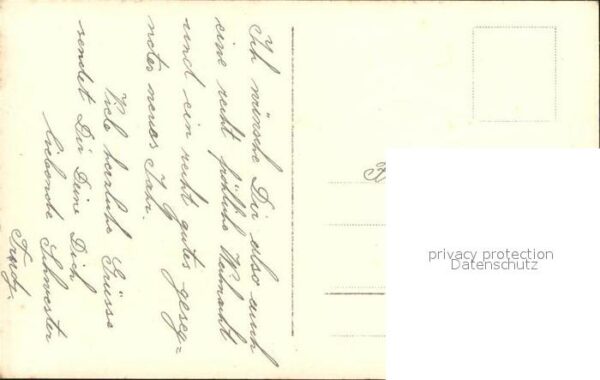 Ich wünsche Dir also auch
eine recht fröhliche Weihnacht
und ein recht gutes geseg-
netes neues Jahr.
Viele herzliche Grüsse
sendet Dir Deine Dich
liebende Schwester
Trudy.
privacy protection
Datenschutz